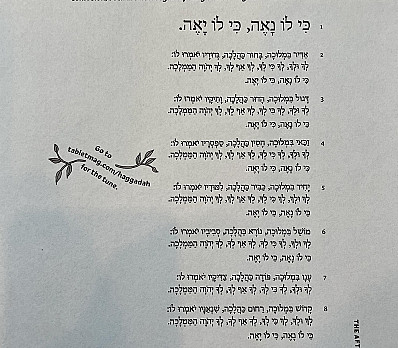 כִּי לוֹ נָאֶה, כִּי לוֹ יָאֶה. 1
אַדִּיר בִּמְלוּכָה, בָּחוּר כַּהֲלָכָה, גְּדוּדָיו יֹאמְרוּ לוֹ: 2
לְךָ וּלְךָ, לְךָ כִּי לְךָ, לְךָ אַף לְךָ, לְךָ יְהֹוָה הַמַּמְלָכָה.
כִּי לוֹ נָאֶה, כִּי לוֹ יָאֶה.
דָּגוּל בִּמְלוּכָה, הָדוּר כַּהֲלָכָה, וָתִיקָיו יֹאמְרוּ לוֹ: 3
לְךָ וּלְךָ, לְךָ כִּי לְךָ, לְךָ אַף לְךָ, לְךָ יְהֹוָה הַמַּמְלָכָה.
כִּי לוֹ נָאֶה, כִּי לוֹ יָאֶה.
זַכַּאי בִּמְלוּכָה, חָסִין כַּהֲלָכָה, טַפְסְרָיו יֹאמְרוּ לוֹ: 4
לְךָ וּלְךָ, לְךָ כִּי לְךָ, לְךָ אַף לְךָ, לְךָ יְהֹוָה הַמַּמְלָכָה.
כִּי לוֹ נָאֶה, כִּי לוֹ יָאֶה.
Go to
tabletmag.com/haggadah
for the tune.
יָחִיד בִּמְלוּכָה, כַּבִּיר כַּהֲלָכָה, לִמּוּדָיו יֹאמְרוּ לוֹ: 5
לְךָ וּלְךָ, לְךָ כִּי לְךָ, לְךָ אַף לְךָ, לְךָ יְהֹוָה הַמַּמְלָכָה.
כִּי לוֹ נָאֶה, כִּי לוֹ יָאֶה.
מוֹשֵׁל בִּמְלוּכָה, נוֹרָא כַּהֲלָכָה, סְבִיבָיו יֹאמְרוּ לוֹ: 6
לְךָ וּלְךָ, לְךָ כִּי לְךָ, לְךָ אַף לְךָ, לְךָ יְהֹוָה הַמַּמְלָכָה.
כִּי לוֹ נָאֶה, כִּי לוֹ יָאֶה.
עָנָו בִּמְלוּכָה, פּוֹדֶה כַּהֲלָכָה, צַדִּיקָיו יֹאמְרוּ לוֹ: 7
לְךָ וּלְךָ, לְךָ כִּי לְךָ, לְךָ אַף לְךָ, לְךָ יְהֹוָה הַמַּמְלָכָה.
כִּי לוֹ נָאֶה, כִּי לוֹ יָאֶה.
קָדוֹשׁ בִּמְלוּכָה, רַחוּם כַּהֲלָכָה, שִׁנְאַנָּיו יֹאמְרוּ לוֹ: 8
לְךָ וּלְךָ, לְךָ כִּי לְךָ, לְךָ אַף לְךָ, לְךָ יְהֹוָה הַמַּמְלָכָה.
כִּי לוֹ נָאֶה, כִּי לוֹ יָאֶה.
THE AFT